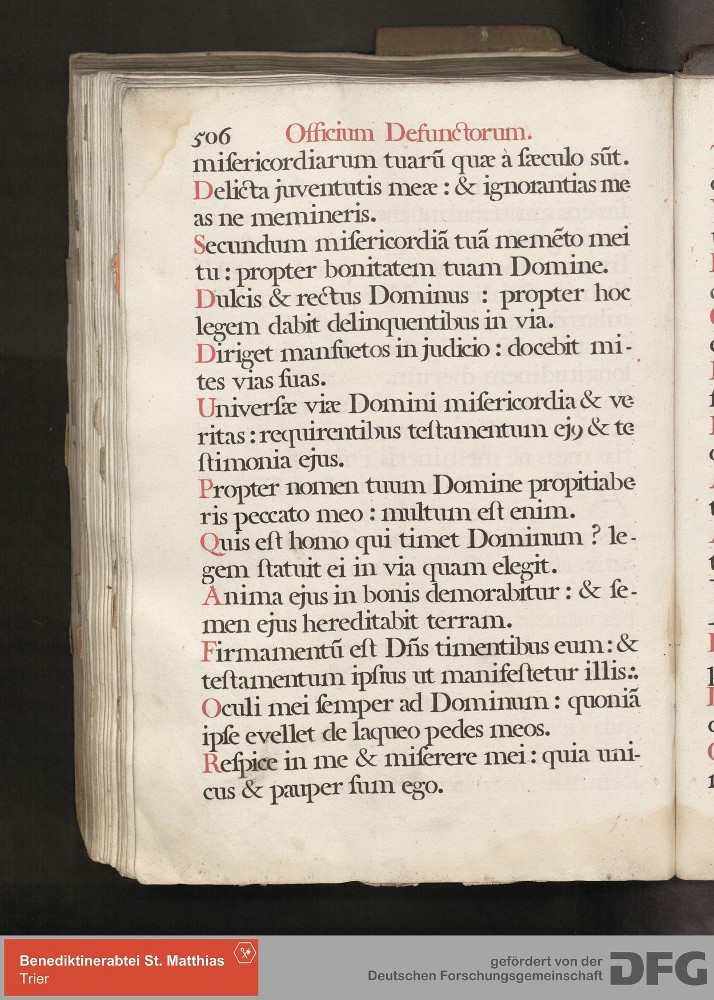 506 Officium Defunctorum.
miſericordiarum tuarũ quæ à ſæculo sũt.
Delicta juventutis meæ : & ignorantias me
as ne memineris.
Secundum miſericordiã tuã memẽto mei
tu : propter bonitatem tuam Domine.
Dulcis & rectus Dominus : propter hoc
legem dabit delinquentibus in via.
Diriget manſuetos in judicio : docebit mi-
tes vias ſuas.
Univerſæ viæ Domini miſericordia & ve
ritas : requirentibus teſtamentum ejꝯ & te
ſtimonia ejus.
Propter nomen tuum Domine propitiabe
ris peccato meo : multum eſt enim.
Quis eſt homo qui timet Dominum ? le-
gem ſtatuit ei in via quam elegit.
Anima ejus in bonis demorabitur : & ſe-
men ejus hereditabit terram.
Firmamentũ eſt Dñs timentibus eum : &
teſtamentum ipſius ut manifeſtetur illis:.
Oculi mei ſemper ad Dominum : quoniã
ipſe evellet de laqueo pedes meos.
Reſpice in me & miſerere mei : quia uni-
cus & pauper ſum ego.
Benediktinerabtei St. Matthias
Trier
gefördert von der
Deutschen Forschungsgemeinschaft
DFG